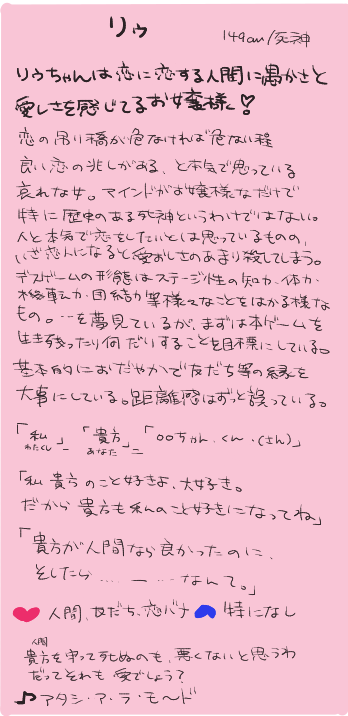 りぅ
149cm/死神
りぅちゃんは恋に恋する人間に愚かさと
愛しさを感じてるお嬢様〜!
恋の吊り橋が危なければ危ない程
良い恋の兆しがある、と本気で思っている
哀れな女。マインドがお嬢様なだけで
特に歴史のある死神というわけではない。
人と本気で恋をしたいとは思っているものの、
いざ恋人になると愛おしさのあまり殺してしまう。
デスゲームの形態はステージ性の知力、体力、
機転力、団結力等様々なことをはかる様な
もの。…を夢見ているが、まずは本ゲームを
生き残ったり何だりすることを目標にしている。
基本的におだやかで友だち等の縁を
大事にしている。距離感はずっと誤っている。
「私」−「貴方」−「○○ちゃん、くん、(さん)」
わたくし あなた
「私 貴方のこと好きよ、大好き。
だから 貴方も私のこと好きになってね」
「貴方が人間なら良かったのに、
そしたら…… ー … なんて。」
人間、友だち、恋バナ 特になし
人間
貴方を守って死ぬのも、悪くないと思うわ
だってそれも 愛でしょう?
アタシ・ア・ラ・モード